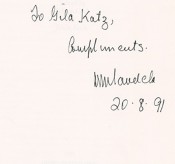 To Gila Katz,
Compliments.
NMandela
20.8.91